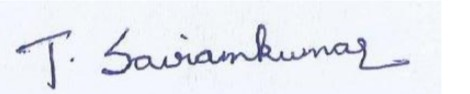 T. Sairamkumar